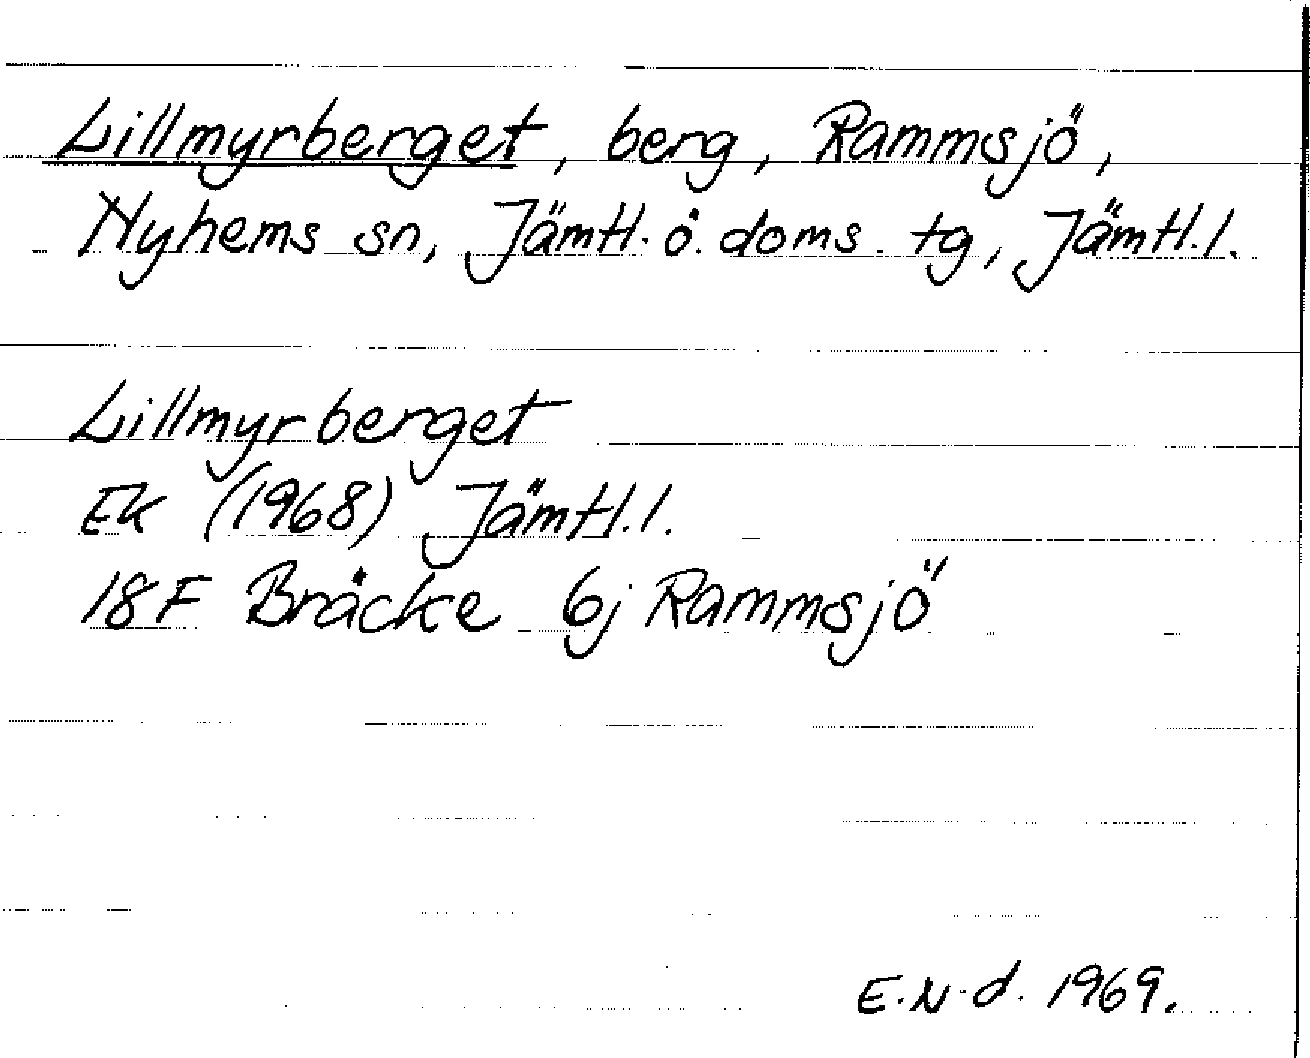 Lillmyrberget, berg, Rammsjö,
Nyhems sn, Jämtl. ö. doms. tg, Jämtl. l.
Lillmyrberget
EK (1968) Jämtl. l.
18F Bräcke 6j Rammsjö
E.N.d. 1969.